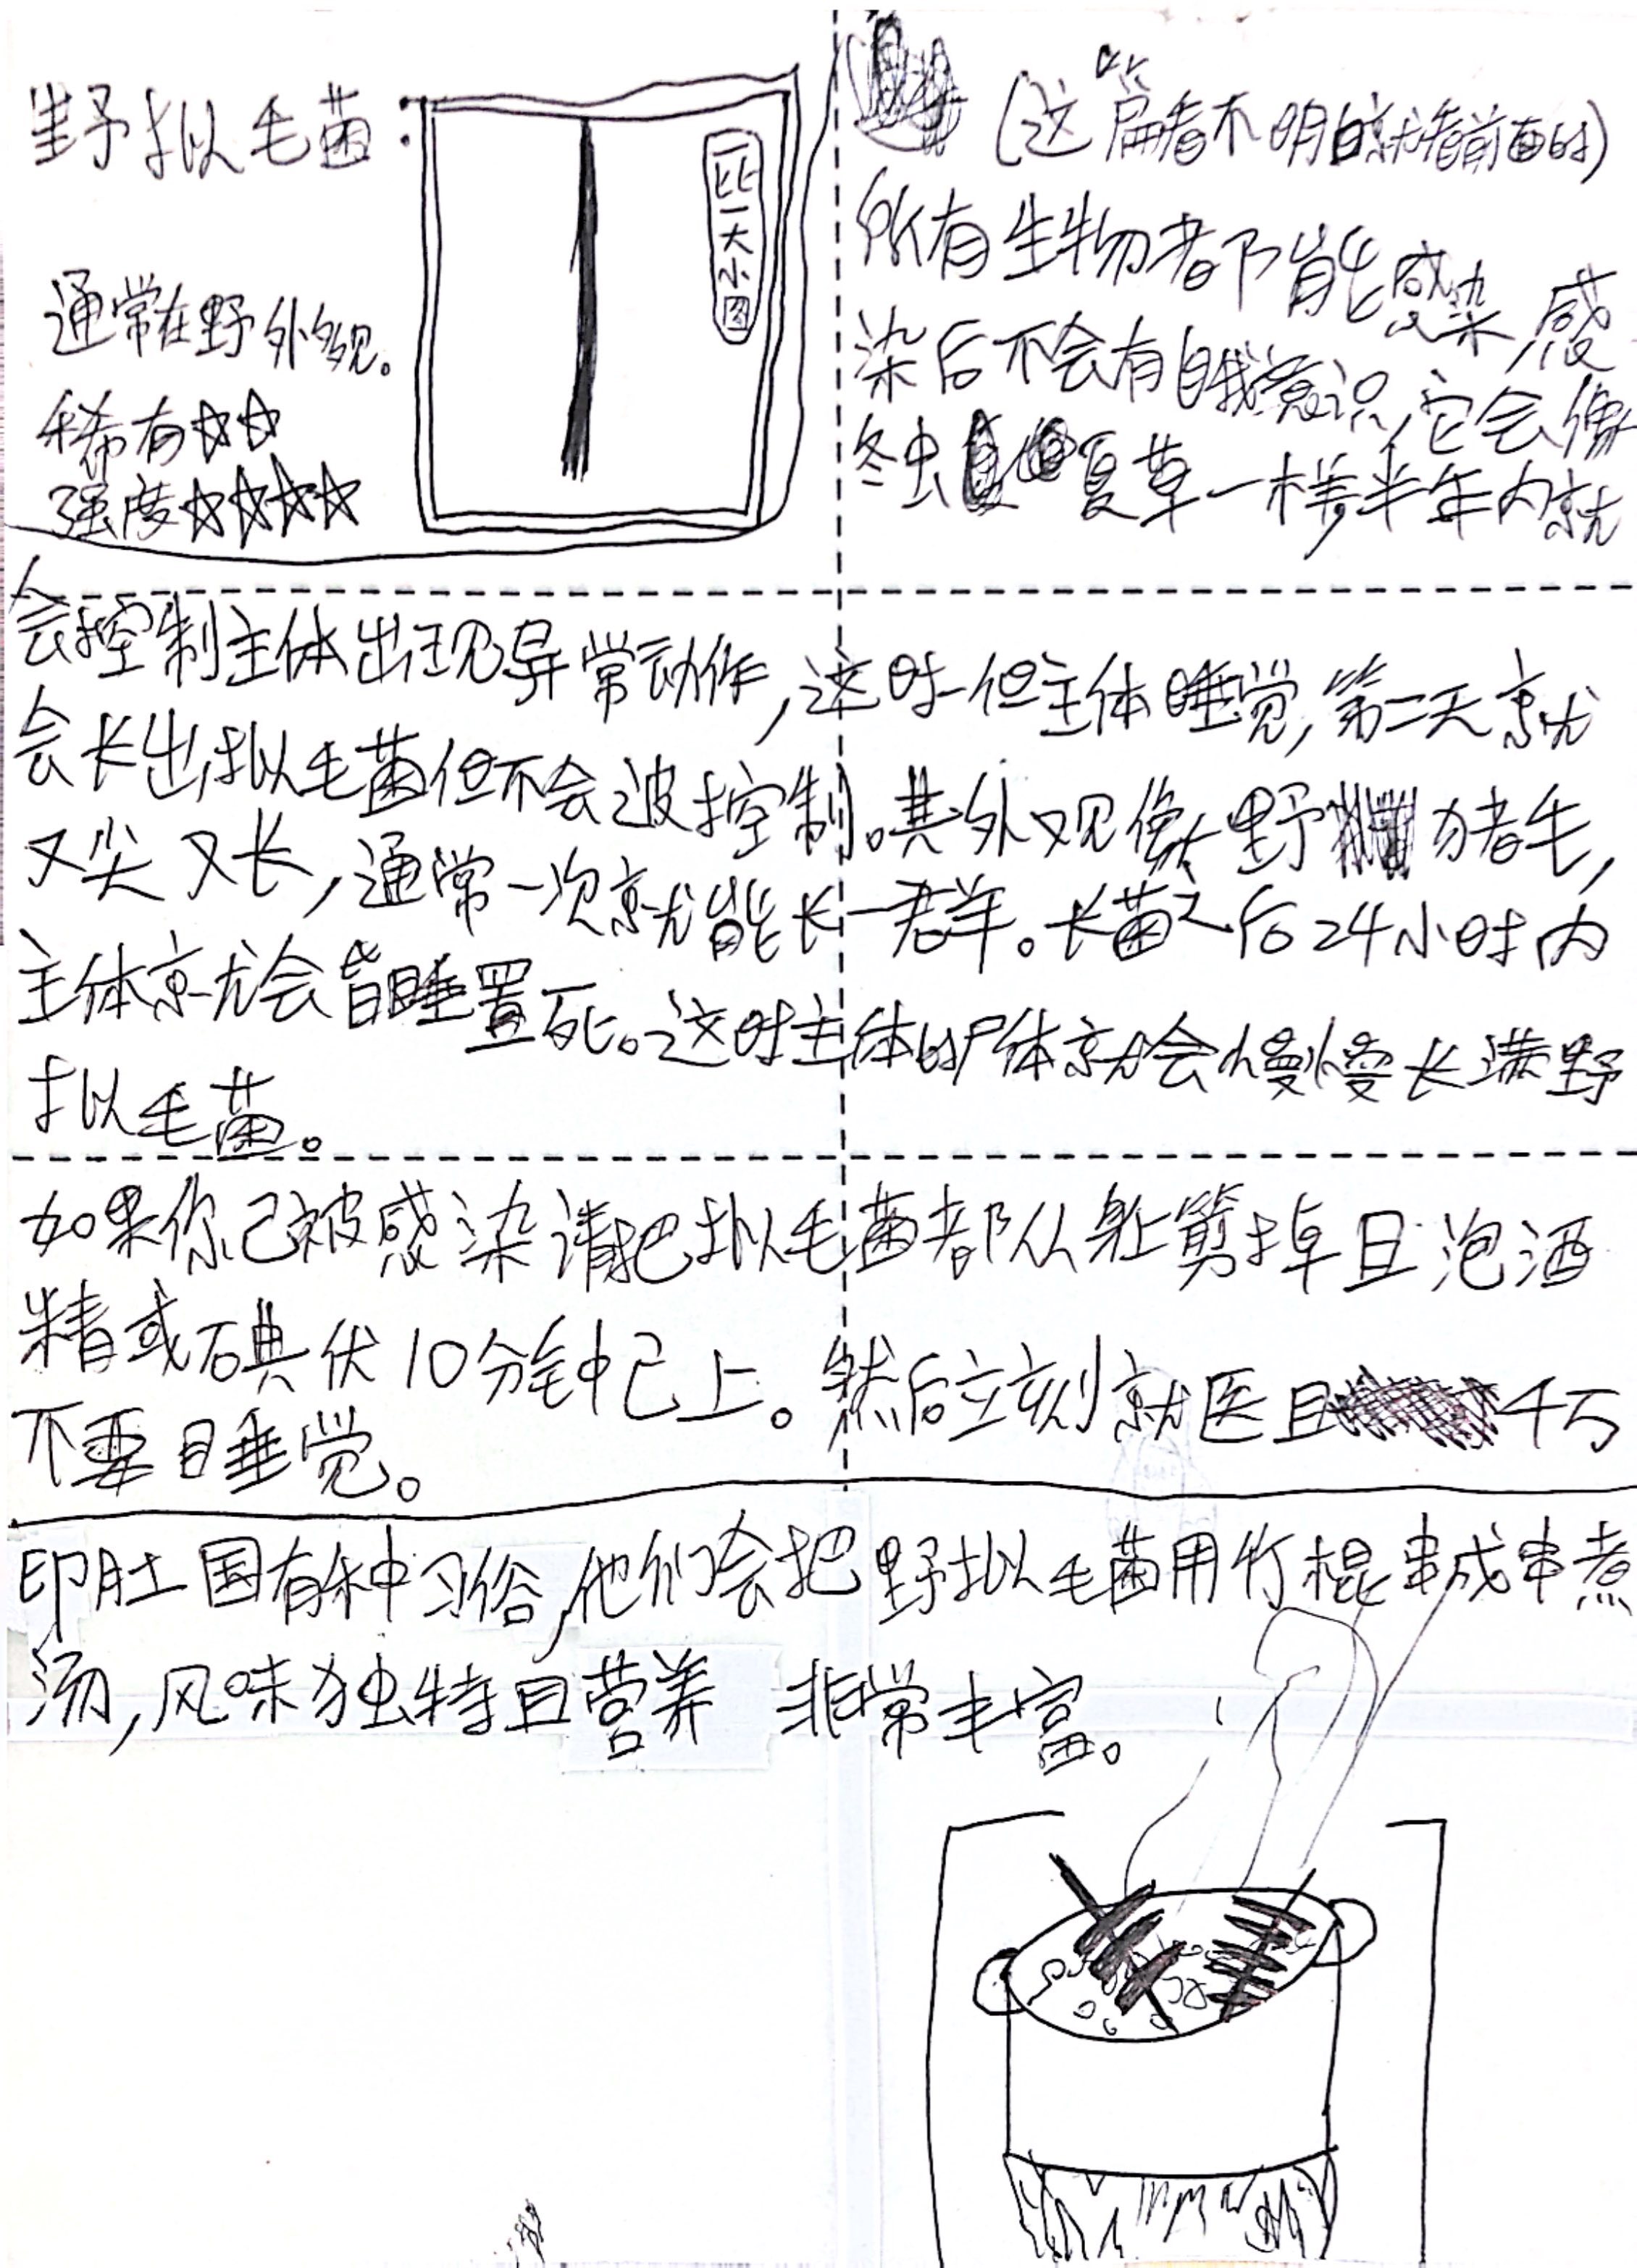 野拟毛菌:
一比一大小图
通常在野外多见。
稀有☆☆
强度☆☆☆☆
(这篇看不明白就看前面的)
所有生物都能感染,感
染后不会有自我意识,它会像
冬虫夏草一样半年内就
会控制主体出现异常动作,这时但主体睡觉,第二天就
会长出拟毛菌但不会被控制。其外观像野猪毛,
又尖又长,通常一次就能长一群。长菌之后24小时内
主体就会直死。这时主体的尸体就会慢慢长满野
拟毛菌。
如果你己被感染请把拟毛菌都从身上剪掉且泡酒
精或碘伏10分钟已上。然后立刻就医且千万
不要睡觉。
印肚国有种习俗,他们会把野拟毛菌用竹棍串成串煮
汤,风味独特且营养非常丰富。